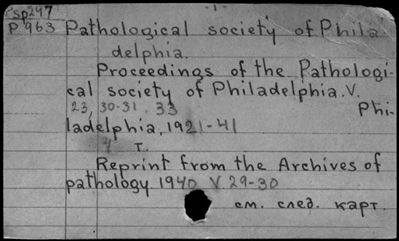 sp297
P963 Pathological society of Phila-
delphia.
Proceedings of the Pathologi-
cal society of Philadelphia. V.
23, 30-31. 33 Phi-
ladelphia, 1921-41
4 т.
Reprint from the Archives of
pathology 1940 V. 29-30
см. след. карт.